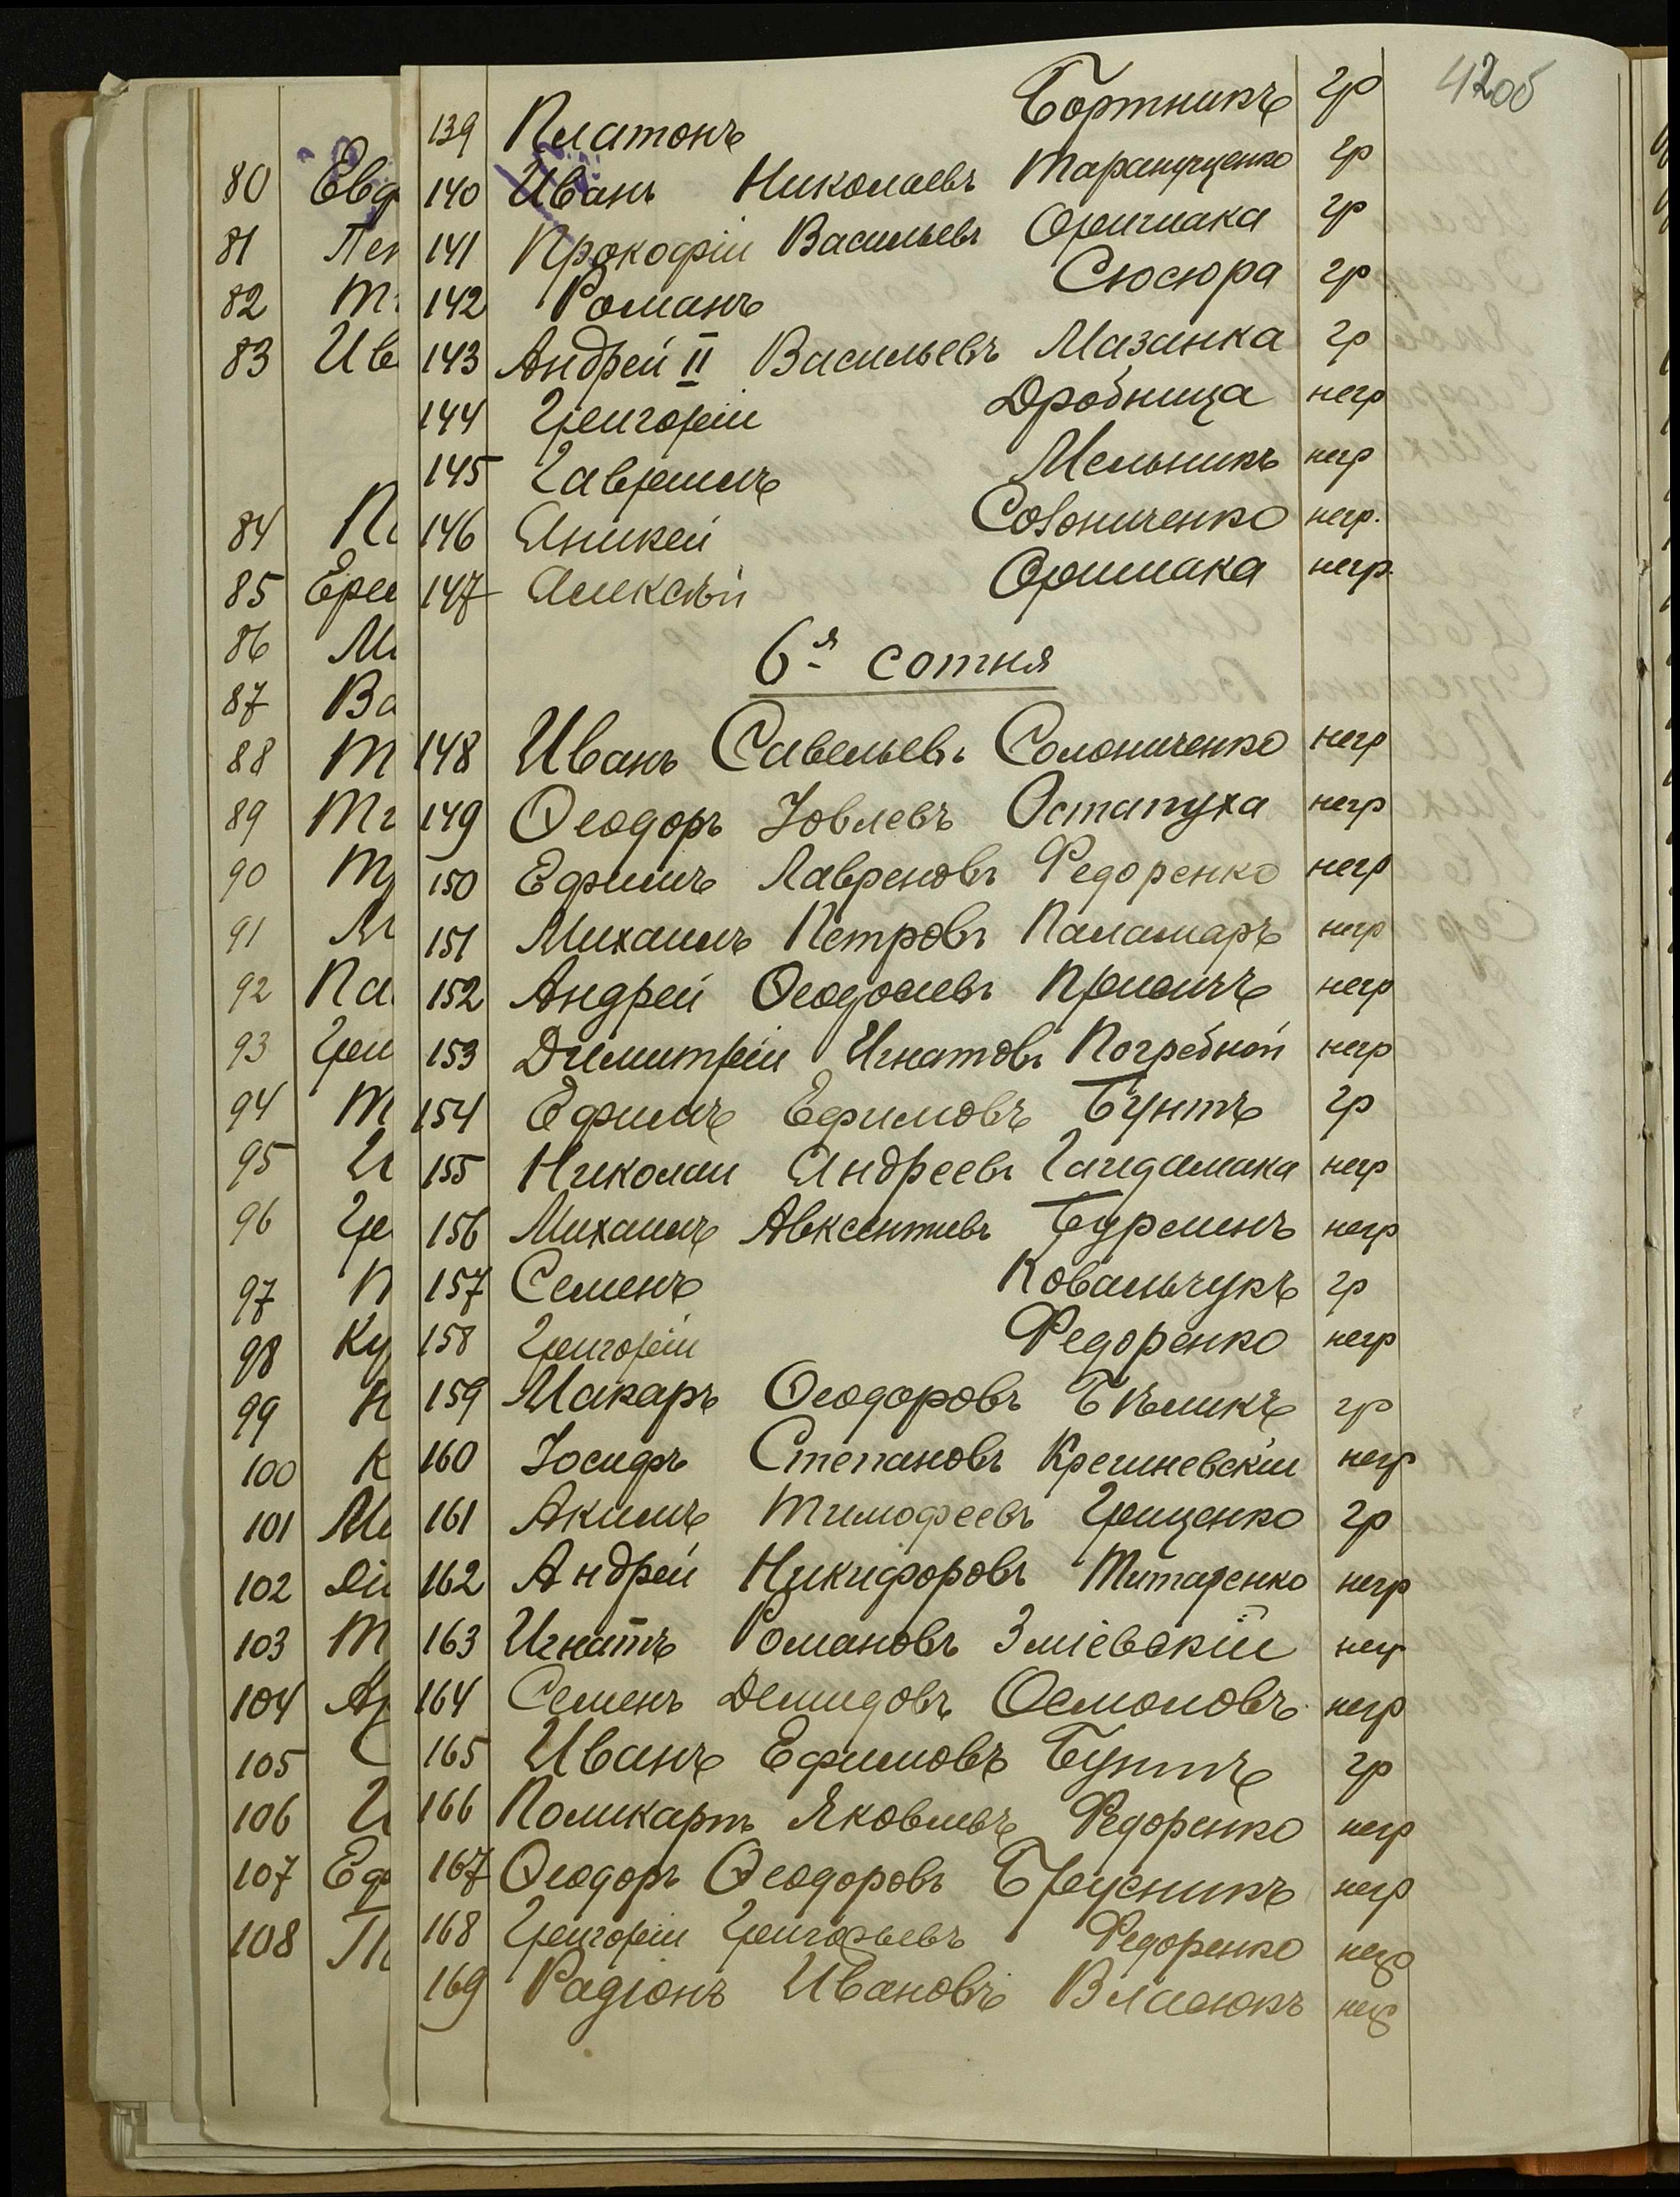 42об
139 Платонъ Бортникъ гр
140 Иванъ Николаевъ Таранущенко гр
141 Прокофій Васильевъ Оришака гр
142 Романъ Сюсюра гр
143 Андрей II Васильевъ Мазанка гр
144 Григорій Дробница негр
145 Гавріилъ Мельникъ негр
146 Аникей Солониченко негр.
147 Алексѣй Оришака негр.
6я сотня
148 Иванъ Савельевъ Солониченко негр
149 Ѳеодоръ Іовлевъ Остапуха негр
150 Ефимъ Лавреновъ Федоренко негр
151 Михаилъ Петровъ Паламаръ негр
152 Андрей Ѳеодосиевъ негр
153 Димитрій Игнатовъ Погребной негр
154 Ефимъ Ефимовъ Бунтъ гр
155 Николай Андреевъ Гайдамака негр
156 Михаилъ Авксентиевъ негр
157 Семенъ Ковальчукъ гр
158 Григорій Федоренко негр
159 Макаръ Ѳеодоровъ Бѣликъ гр
160 Іосифъ Степановъ Кремневскій негр
161 Акимъ Тимофеевъ Грищенко гр
162 Андрей Никифоровъ Титаренко негр
163 Игнатъ Романовъ Зміевскій негр
164 Семенъ Демидовъ негр
165 Иванъ Ефимовъ Бунтъ гр
166 Поликарпъ Яковлевъ Федоренко негр
167 Ѳеодоръ Ѳеодоровъ Брусникъ негр
168 Григорій Григорьевъ Федоренко негр
169 Радіонъ Ивановъ Власюкъ негр
80
81
82
83
84
85
86
87
88
89
90
91
92
93
94
95
96
97
98
99
100
101
102
103
104
105
106
107
108